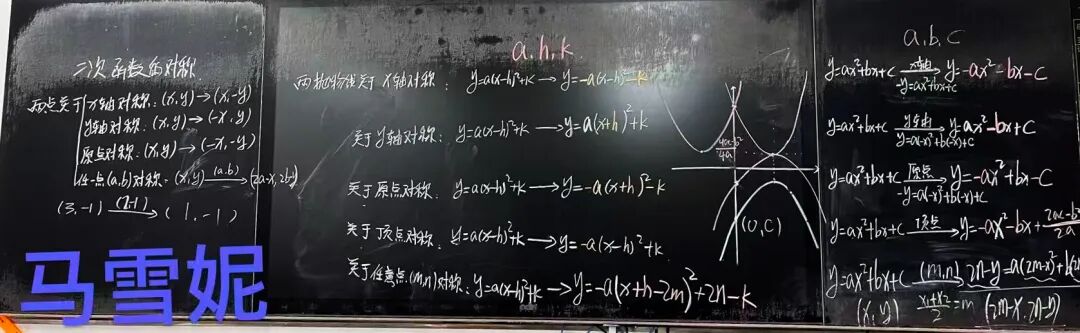 二次函数的对称
两点关于x轴对称：(x,y)→(x,-y)
y轴对称：(x,y)→(-x,y)
原点对称：(x,y)→(-x,-y)
任一点(a,b)对称：(x,y) (a,b)→(2a-x,2b-y)
(3,-1) →(1,-1)
马雪妮
a,h,k
两抛物线关于x轴对称：y=a(x-h)²+k→y=-a(x-h)²-k
关于y轴对称：y=a(x-h)²+k→y=a(x+h)²+k
关于原点对称：y=a(x-h)²+k→y=-a(x+h)²-k
关于顶点对称：y=a(x-h)²+k→y=-a(x-h)²+k
关于任意点(m,n)对称：y=a(x-h)²+k→y=-a(x+h-2m)²+2n-k
(0,C)
a,b,c
y=ax²+bx+c x轴→y=-ax²-bx-c
-y=ax²+bx+c
y=ax²+bx+c y轴→y=ax²-bx+c
y=a(-x)²+b(-x)+c
y=ax²+bx+c 原点→y=-ax²+bx-c
-y=a(-x)²+b(-x)+c
y=ax²+bx+c 顶点→y=-ax²-bx+
y=ax²+bx+c (m,n) 2n-y=a(2m-x)²+b(2m
(x,y) x₁+x₂/2=m (2m-x,2n-y)